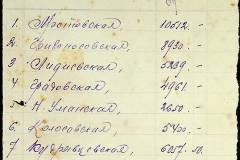 1. Мостовская, 10512. -
2. Кривоносовская, 8930. -
3. Лидиевская, 5239. -
4. Градовская, 4961. -
5. Н. Уманская, 2650. -
6. Колосовская, 5400. -
7. Кудрявцевская, 6057. 50.